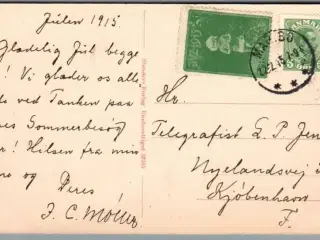 Julen 1915
Glædelig Jul begge
! Vi glæder os alle
ds ved Tanken paa
es Sommerbesøg
er! Hilsen fra min
ne og Deres
J. C. Møller
Hr.
Telegrafist L. P. Jen
Nyelandsvej
Kjøbenhavn
F.